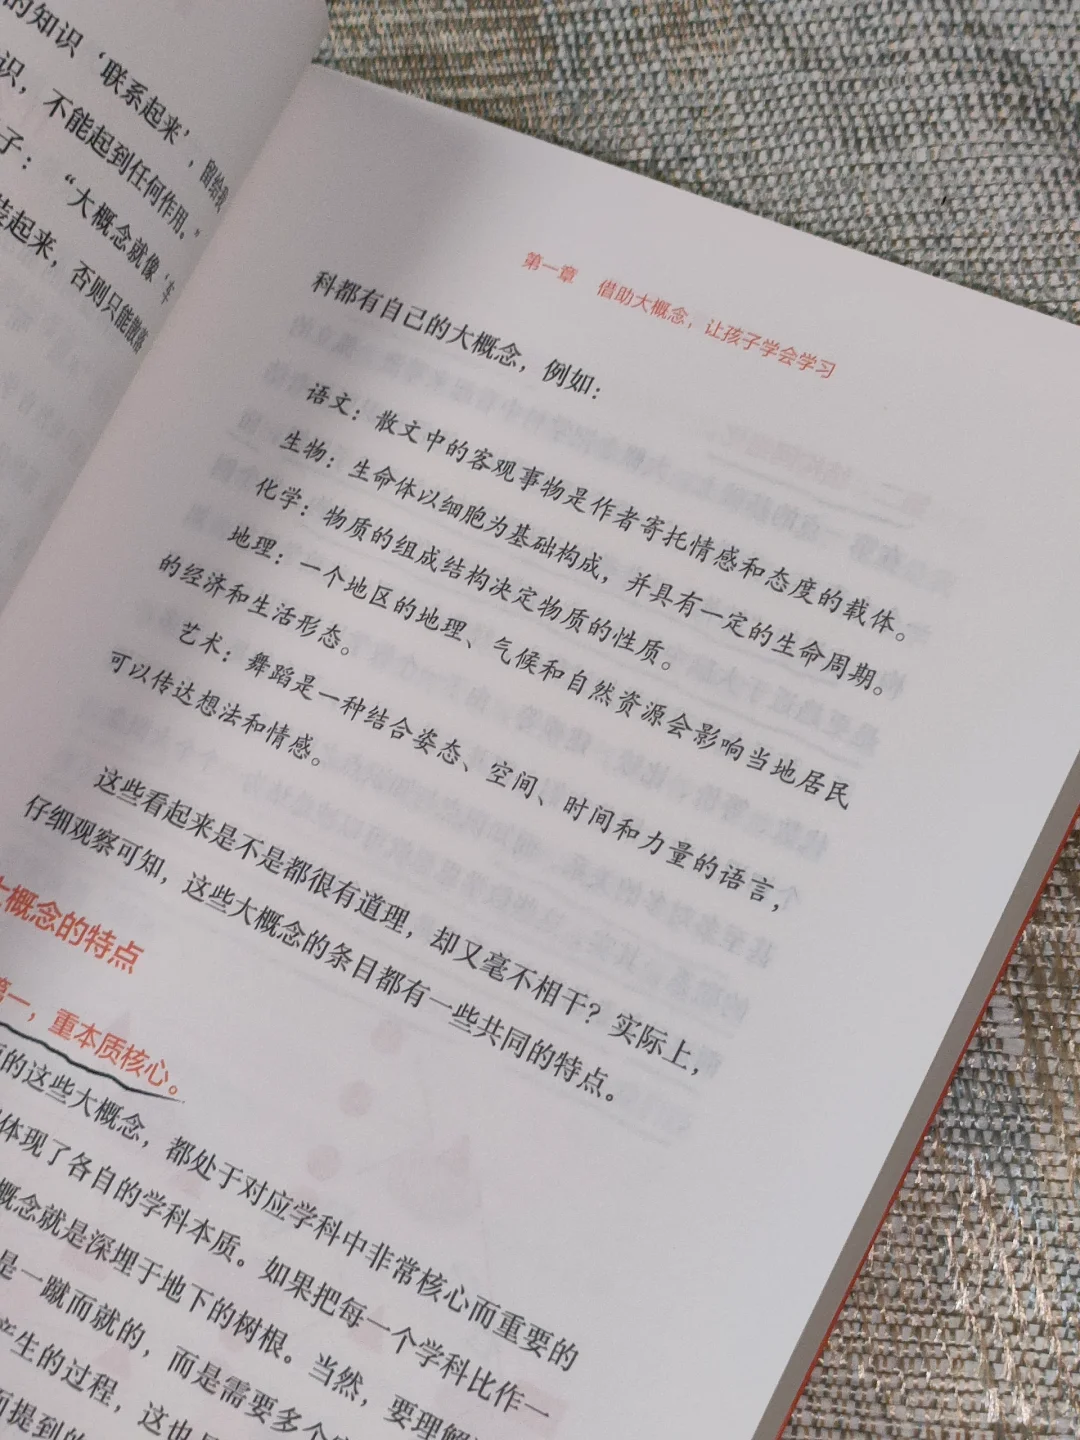 的知识‘联系起来’，留给我
识，不能起到任何作用。”
子：“大概念就像‘车
装起来，否则只能散落
第一章 借助大概念，让孩子学会学习
科都有自己的大概念，例如：
语文：散文中的客观事物是作者寄托情感和态度的载体。
生物：生命体以细胞为基础构成，并具有一定的生命周期。
化学：物质的组成结构决定物质的性质。
地理：一个地区的地理、气候和自然资源会影响当地居民
的经济和生活形态。
艺术：舞蹈是一种结合姿态、空间、时间和力量的语言，
可以传达想法和情感。
这些看起来是不是都很有道理，却又毫不相干？实际上，
仔细观察可知，这些大概念的条目都有一些共同的特点。
大概念的特点
第一，重本质核心。
的这些大概念，都处于对应学科中非常核心而重要的
体现了各自的学科本质。如果把每一个学科比作一
概念就是深埋于地下的树根。当然，要理解
是一蹴而就的，而是需要多个
产生的过程，这也
而提到的